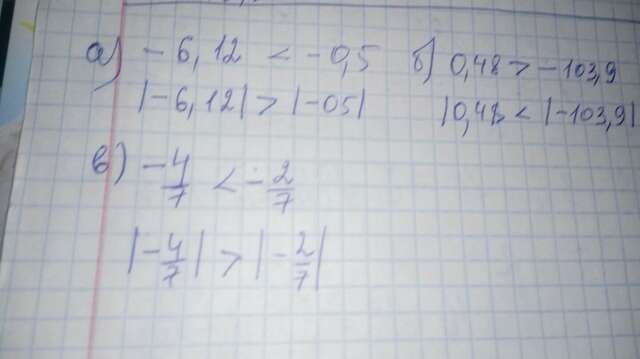 а) -6,12 < -0,5 б) 0,48 > -103,9
|-6,12| > |-05| |0,48 < |-103,9|
в) -4/7 < -2/7
|-4/7| > |-2/7|